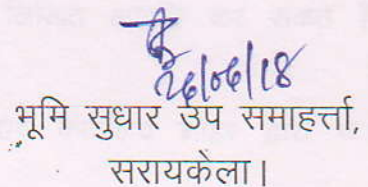 26/06/18
भूमि सुधार उप समाहर्त्ता,
सरायकेला।